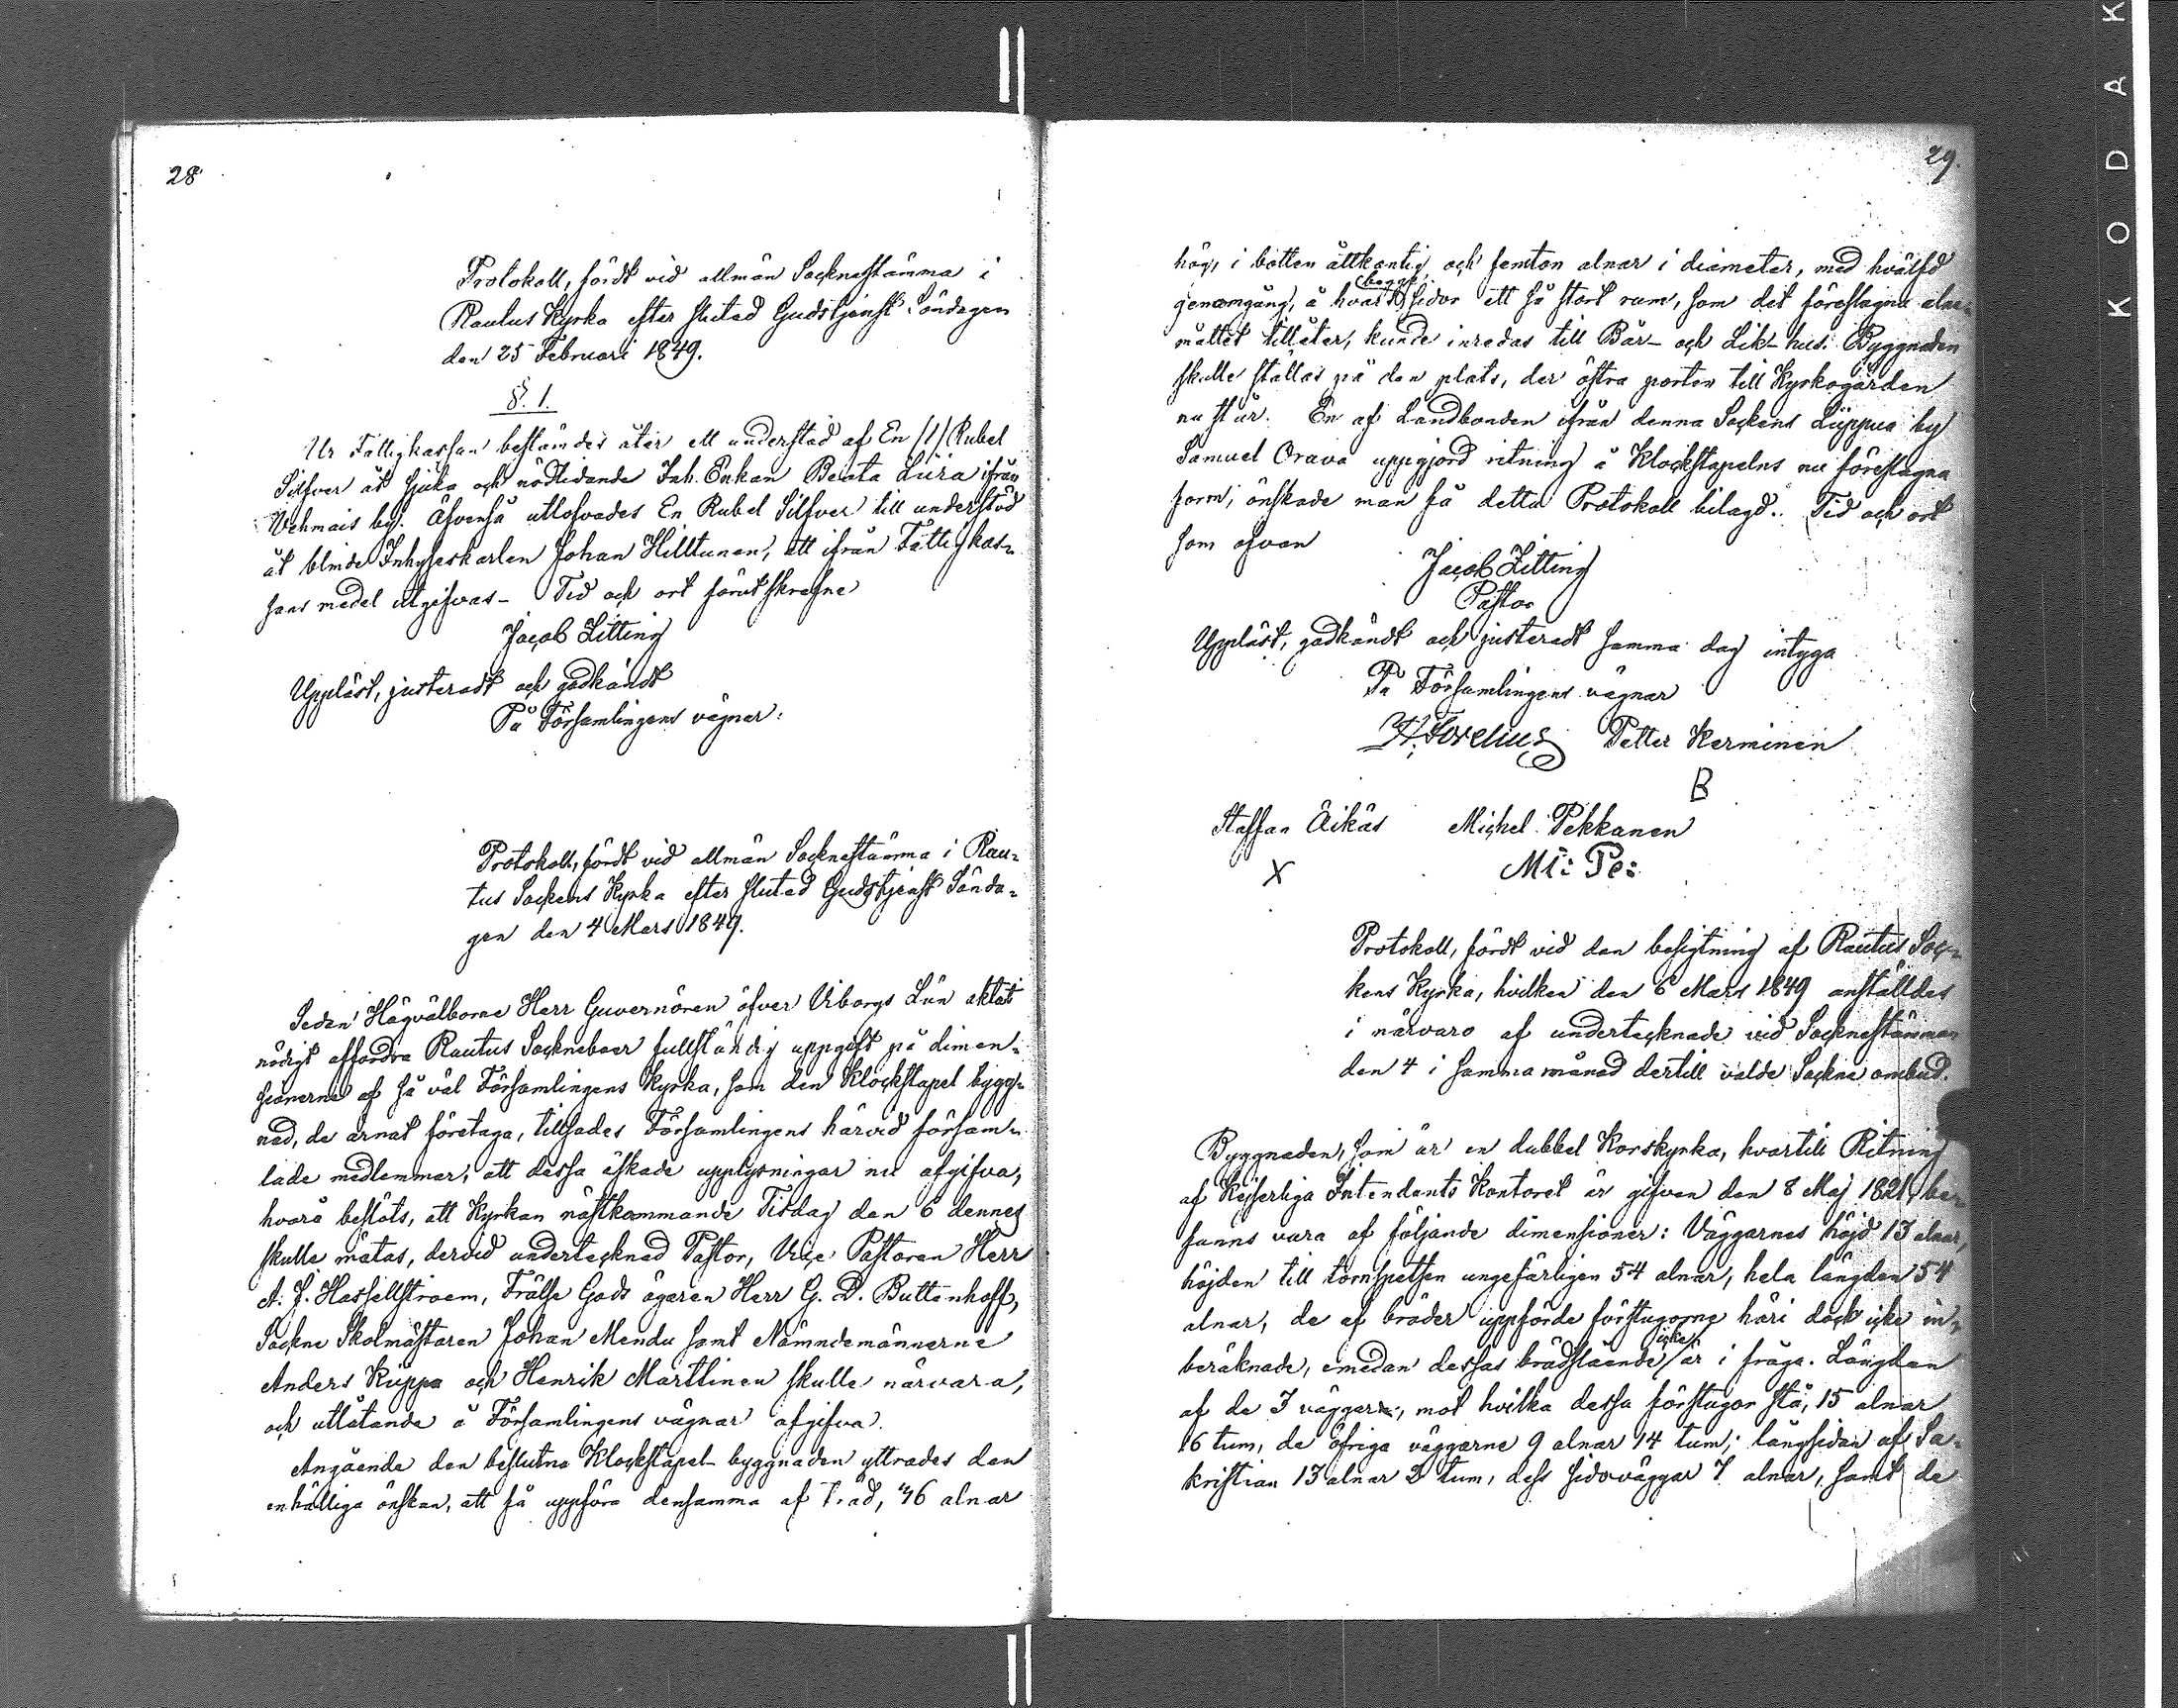 28
Protokoll, fördt vid allmän Socknestämma i
Rautus Kyrka efter slutad Gudstjenst Söndagen
den 25 Februari 1849.
§. 1.
Ur Fattigkassan bestämdes åter ett understöd af En /1/ Rubel
Silfver åt sjuka och nödlidande Inh. Enkan Beata Liira ifrån
Vehmais by. Äfvenså utlofvades En Rubel Silfver till understöd
åt blinde Inhyseskarlen Johan Hilltunen, att ifrån Fattigkas-
sans medel utgifvas- Tid och ort förutskrefne
Jacob Zitting
Uppläst, justeradt och godkändt
På Församlingens vägnar:
Protokoll, fördt vid allmän Socknestämma i Rau-
tus Sockens Kyrka efter slutad Gudstjenst Sönda-
gen den 4 Mars 1849.
Sedan Högvälborne Herr Guvernören öfver Viborgs Län aktat
nödigt affordra Rautus Sockneboer fullständig uppgift på dimen-
sionerne af så väl Församlingens Kyrka, som den Klockstapel bygg-
nad, de ärnat företaga, tillsades Församlingens härvid försam-
lade medlemmar, att dessa äskade upplysningar nu afgifva,
hvarå beslöts, att Kyrkan nästkommande Tisdag den 6 dennes
skulle mätas, dervid undertecknad Pastor, Vice Pastoren Herr
A. F. Hassellstroem, Frälse Gods ägaren Herr G. D. Buttenhoff,
Sockne Skolmästaren Johan Mendu samt Nämndemännerne
Anders Kiippa och Henrik Marttinen skulle närvara,
och utlåtande å Församlingens vägnar afgifva.
Angående den beslutna Klockstapel-byggnaden yttrades den
enhälliga önskan, att få uppföra densamma af Träd, 46 alnar
29.
hög, i botten åttkantig och femton alnar i diameter, med hvälfd
genomgång, å hvars begge sidor ett så stort rum, som det föreslagna aln-
måttet tillåter, kunde inredas till Bår- och Lik-hus. Byggnaden
skulle ställas på den plats, der östra porten till Kyrkogården
nu står. En af Landbonden ifrån denna Sockens Liippua by
Samuel Orava uppgjord ritning å Klockstapelns nu föreslagna
form, önskade man få detta Protokoll bilagd. Tid och ort
som ofvan
Jacob Zitting
Pastor
Uppläst, godkändt och justeradt samma dag intyga
På Församlingens vägnar
Petter Kerminen
B
Staffan Äikäs Michel Pekkanen
X M: Pe:
Protokoll, fördt vid den besigtning af Rautus Soc-
kens Kyrka, hvilken den 6 Mars 1849 anställdes
i närvaro af undertecknade vid Socknestämman
den 4 i samma månad dertill valde Sockne ombud.
Byggnaden, som är en dubbel Korskyrka, hvartill Ritning
af Kejserliga Intendants Kontoret är gifven den 8 Maj 1821, be-
fanns vara af följande dimensioner: Väggarnes höjd 13 alnar,
höjden till tornspetsen ungefärligen 54 alnar, hela längden 54
alnar, de af bräder uppförde förstugorne häri dock icke in-
beräknade, emedan dessas brädslående icke är i fråga. Längden
af de 3 väggar, mot hvilka dessa förstugor stå, 15 alnar
16 tum, de öfriga väggarne 9 alnar 14 tum; långsidan af Sa-
kristian 13 alnar 2 tum, dess sidoväggar 7 alnar, samt de
KODAK